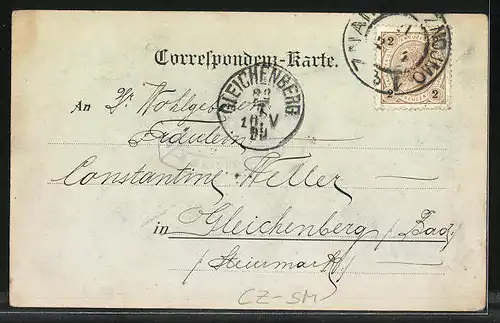 Correspondenz-Karte.
ZNAIM ZNOJMO
2 2
2 2
GLEICHENBERG
22
7
10.V
99
An Sr Wohlgeboren
Fräulein
Constantine Weller
in Gleichenberg / Bad
/ Steiermark /
CZ-SM